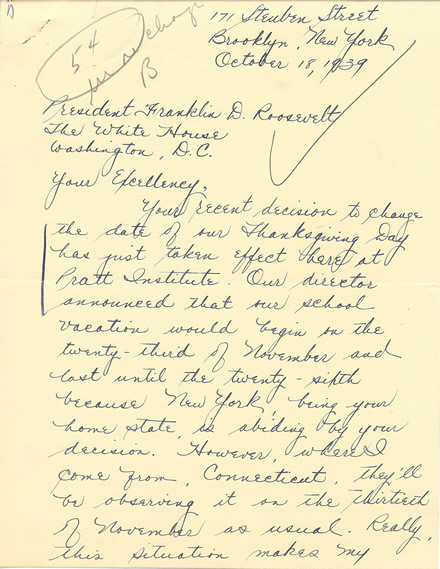 54
B
171 Steuben Street
Brooklyn, New York
October 18, 1939
President Franklin D. Roosevelt
The White House
Washington, D.C.
Your Excellency,
Your recent decision to change
the date of our Thanksgiving Day
has just taken effect here at
Pratt Institute. Our director
announced that our school
vacation would begin on the
twenty-third of November and
last until the twenty-sixth
because New York, being your
home state, is abiding by your
decision. However, where I
come from, Connecticut, they'll
be observing it on the thirtieth
of November as usual. Really,
this situation makes my